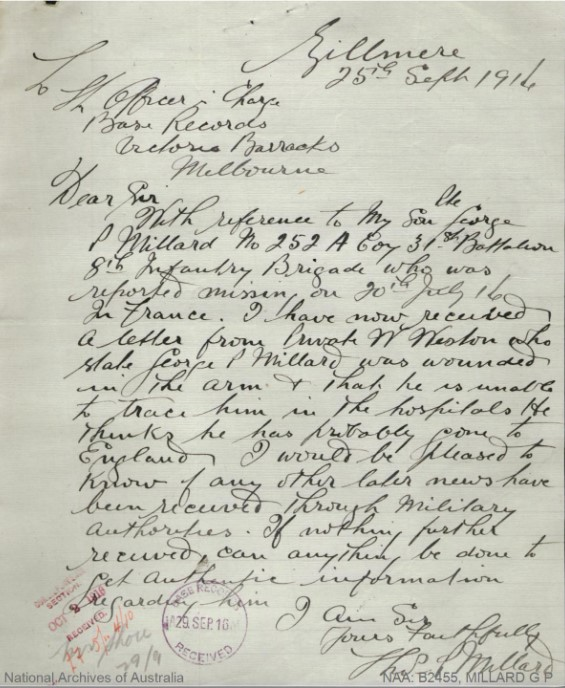 Gillmere
25th Sept 1916
To
The Officer i Charge
Base Records
Victoria Barracks
Melbourne
Dear Sir
With reference to My Son Pte George
P Millard No 252 A Coy 31st Battalion
8th Infantry Brigade who was
reported missing on 20th July 16
In France. I have now received
a letter from Private W Weston who
state George P Millard was wounded
in the arm & that he is unable
to trace him in the hospitals He
thinks he has probably gone to
England I would be pleased to
know if any other later news have
been received through Military
authorities. If nothing further
received, can anything be done to
get authentic information
regarding him
I Am Sir
Yours Faithfully
Millard
SECTION
OCT 9 1916
RECEIVED
29/9
BASE RECORDS
29. SEP. 16
RECEIVED
National Archives of Australia
NAA: B2455, MILLARD G P